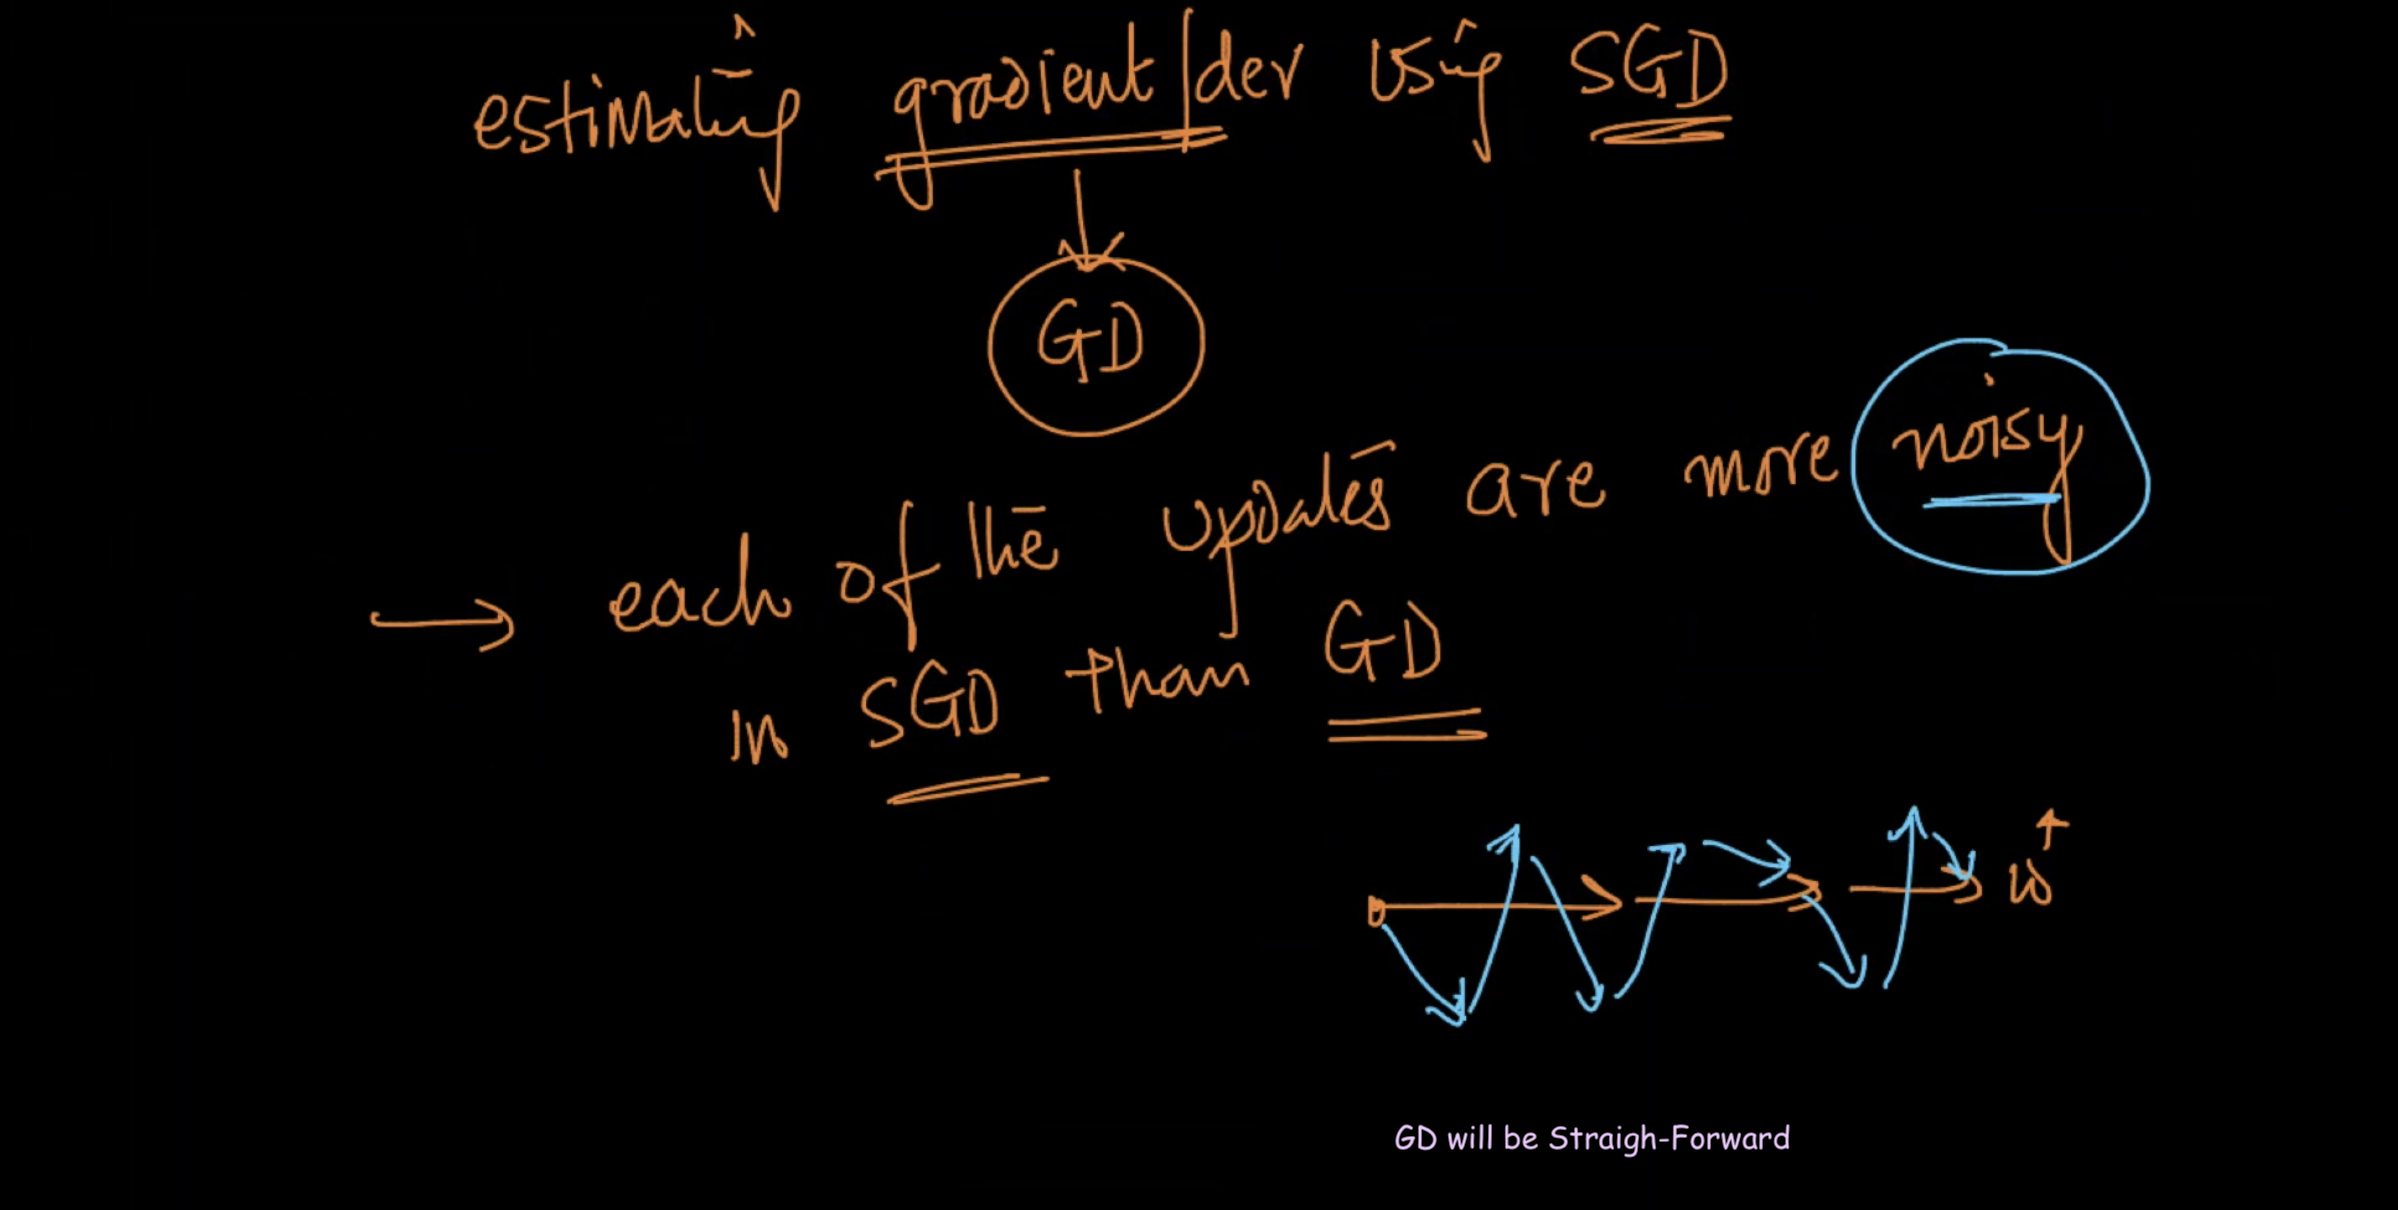 estimating gradient/der using SGD
GD
→ each of the updates are more noisy
in SGD than GD
w*
GD will be Straigh-Forward